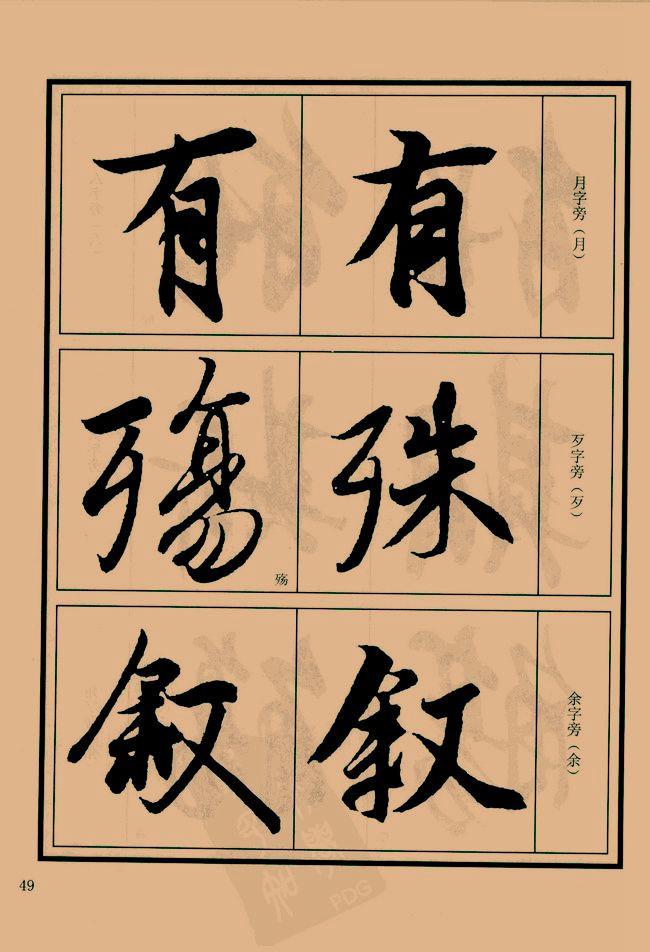 月字旁（月）
有
有
歹字旁（歹）
殊
殇
殇
余字旁（余）
叙
叙
49
PDG